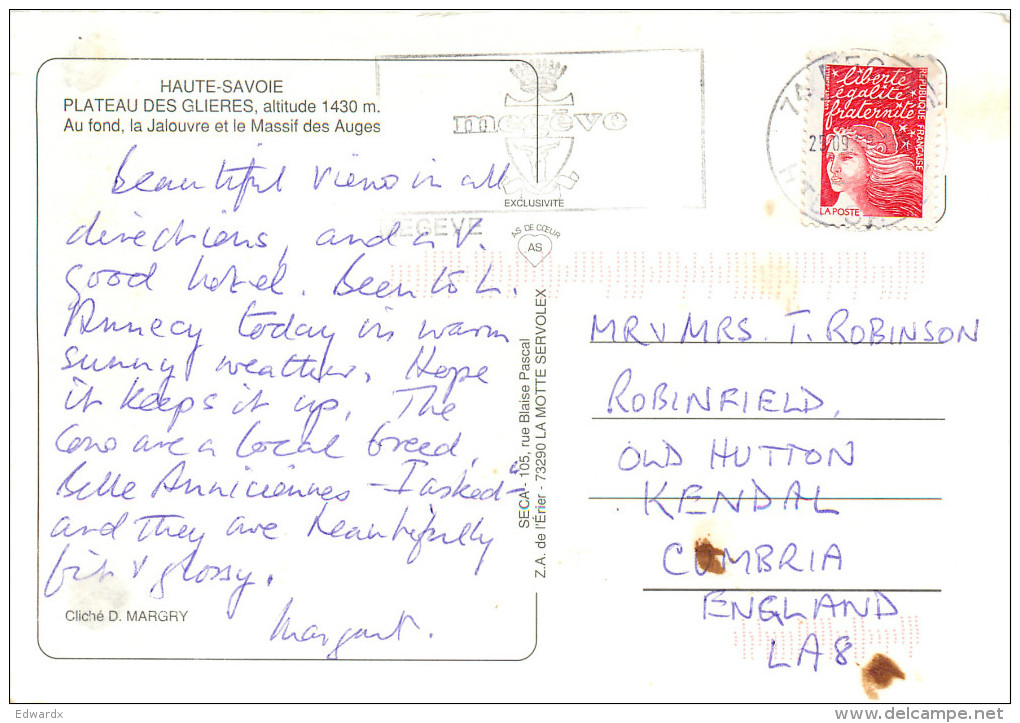 HAUTE-SAVOIE
PLATEAU DES GLIERES, altitude 1430 m.
Au fond, la Jalouvre et le Massif des Auges
Beautiful views in all
directions, and a v.
good hotel. Been to L.
Annecy today in warm
sunny weather. Hope
it keeps it up. The
cows are a local breed,
Belle Anniciennes - I asked -
and they are beautifully
fit & glossy.
Margaret.
Cliché D. MARGRY
megève
MEGEVE
EXCLUSIVITÉ
AS DE CŒUR
AS
SECA - 105, rue Blaise Pascal
Z.A. de l'Érier - 73290 LA MOTTE SERVOLEX
liberté
égalité
fraternité
RÉPUBLIQUE FRANÇAISE
LA POSTE
MR & MRS. T. ROBINSON
ROBINFIELD,
OLD HUTTON
KENDAL
CUMBRIA
ENGLAND
LA8
Edwardx
www.delcampe.net